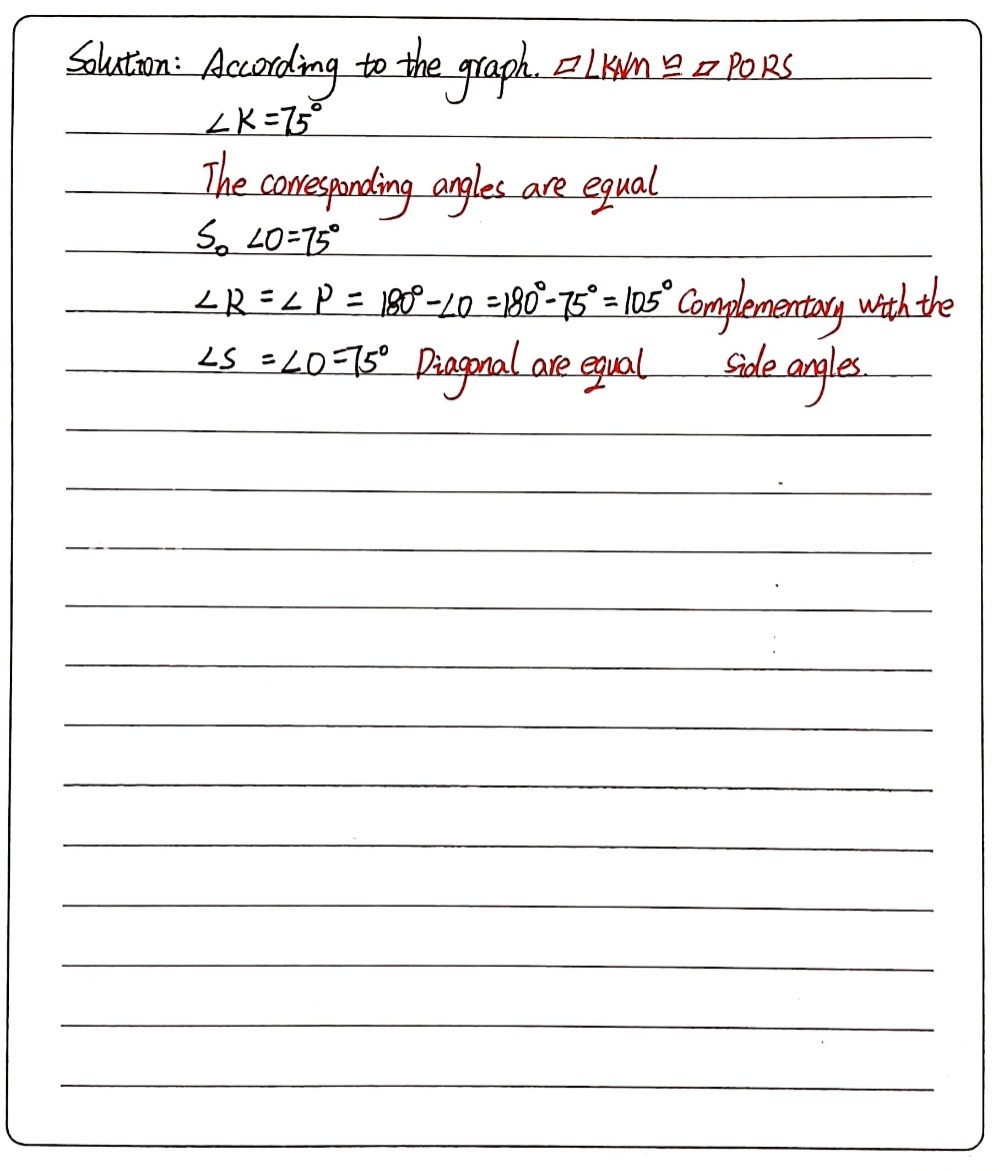 Solution: According to the graph. ▱LKNM ≌ ▱PORS
∠K=75°
The corresponding angles are equal
So ∠O=75°
∠R =∠P = 180°-∠O =180°-75°=105° Complementary with the
∠S =∠O=75° Diagonal are equal side angles.